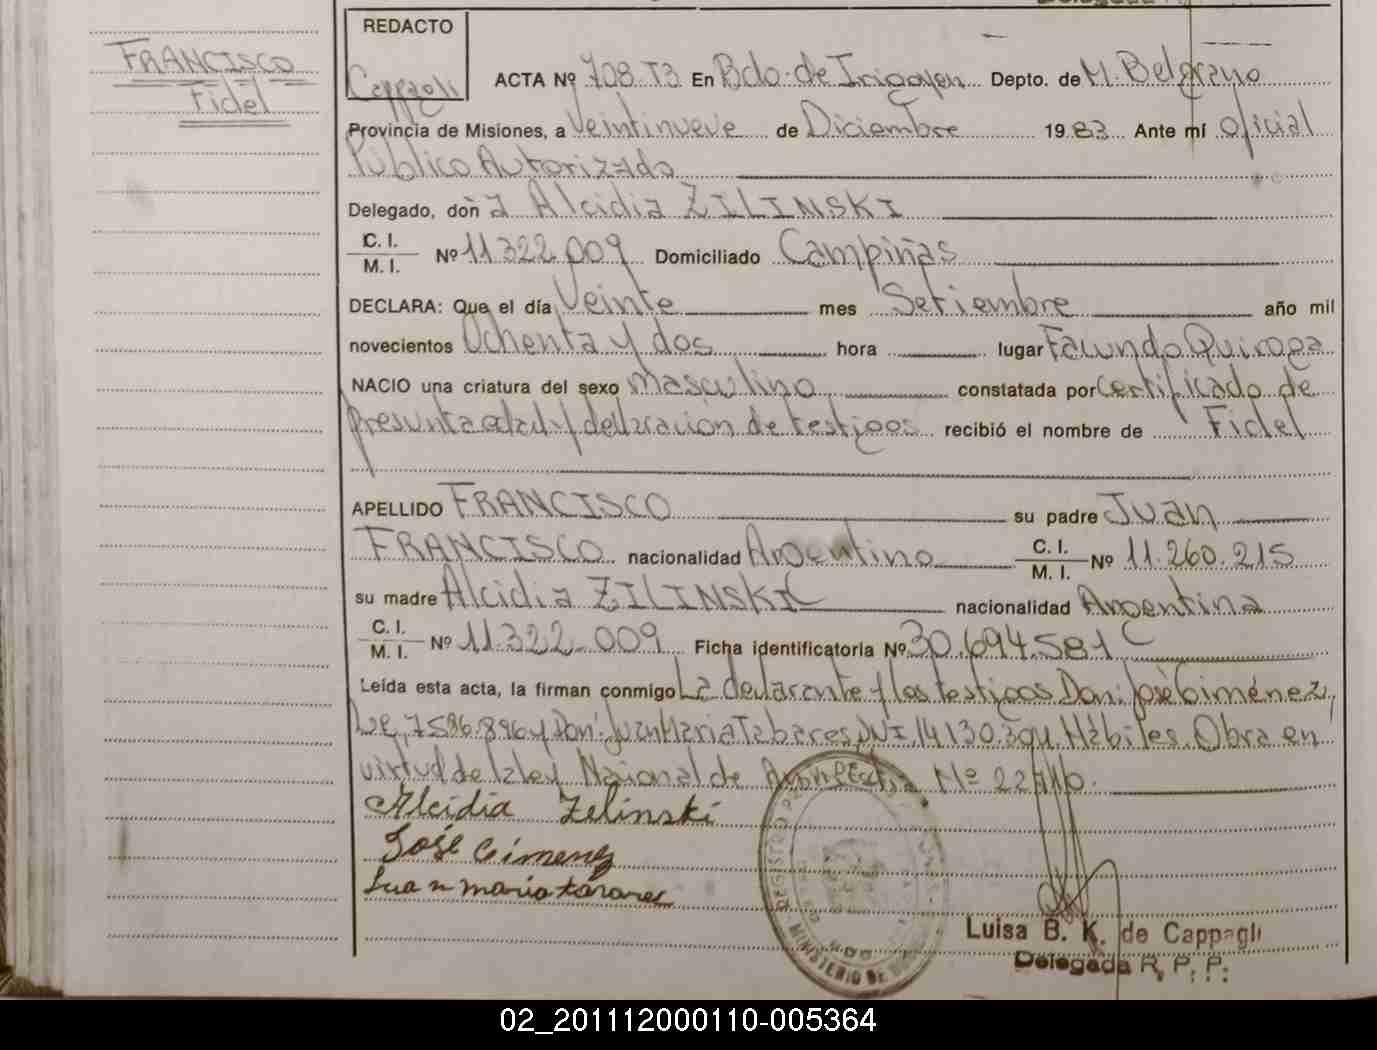 FRANCISCO
Fidel
REDACTO
Cappagli
ACTA Nº 708. T3 En Bdo. de Irigoyen Depto. de M. Belgrano
Provincia de Misiones, a Veintinueve de Diciembre 1983 Ante mí Oficial
Público Autorizado
Delegado, don a Alcidia ZILINSKI
C. I.
M. I. Nº 11.322.009 Domiciliado Campiñas
DECLARA: Que el día Veinte mes Setiembre año mil
novecientos Ochenta y dos hora lugar Facundo Quiroga
NACIO una criatura del sexo masculino constatada por Certificado de
presunta edad y declaración de testigos recibió el nombre de Fidel
APELLIDO FRANCISCO su padre Juan
FRANCISCO nacionalidad Argentino C. I. M. I. Nº 11.260.215
su madre Alcidia ZILINSKI nacionalidad Argentina
C. I. M. I. Nº 11.322.009 Ficha identificatoria Nº 30.694.581
Leída esta acta, la firman conmigo La declarante y los testigos Don: José Giménez,
LE, 7.596.896 y Don: Juan Maria Tabares, DNI, 14.130.394. Hábiles. Obra en
virtud de la ley Nacional de Amnistía Nº 22.
Alcidia Zelinski
José Gimenez
Juan maria tavares
REGISTRO
MINISTERIO DE
Luisa B. K. de Cappagli
Delegada R. P. P.
02_201112000110-005364